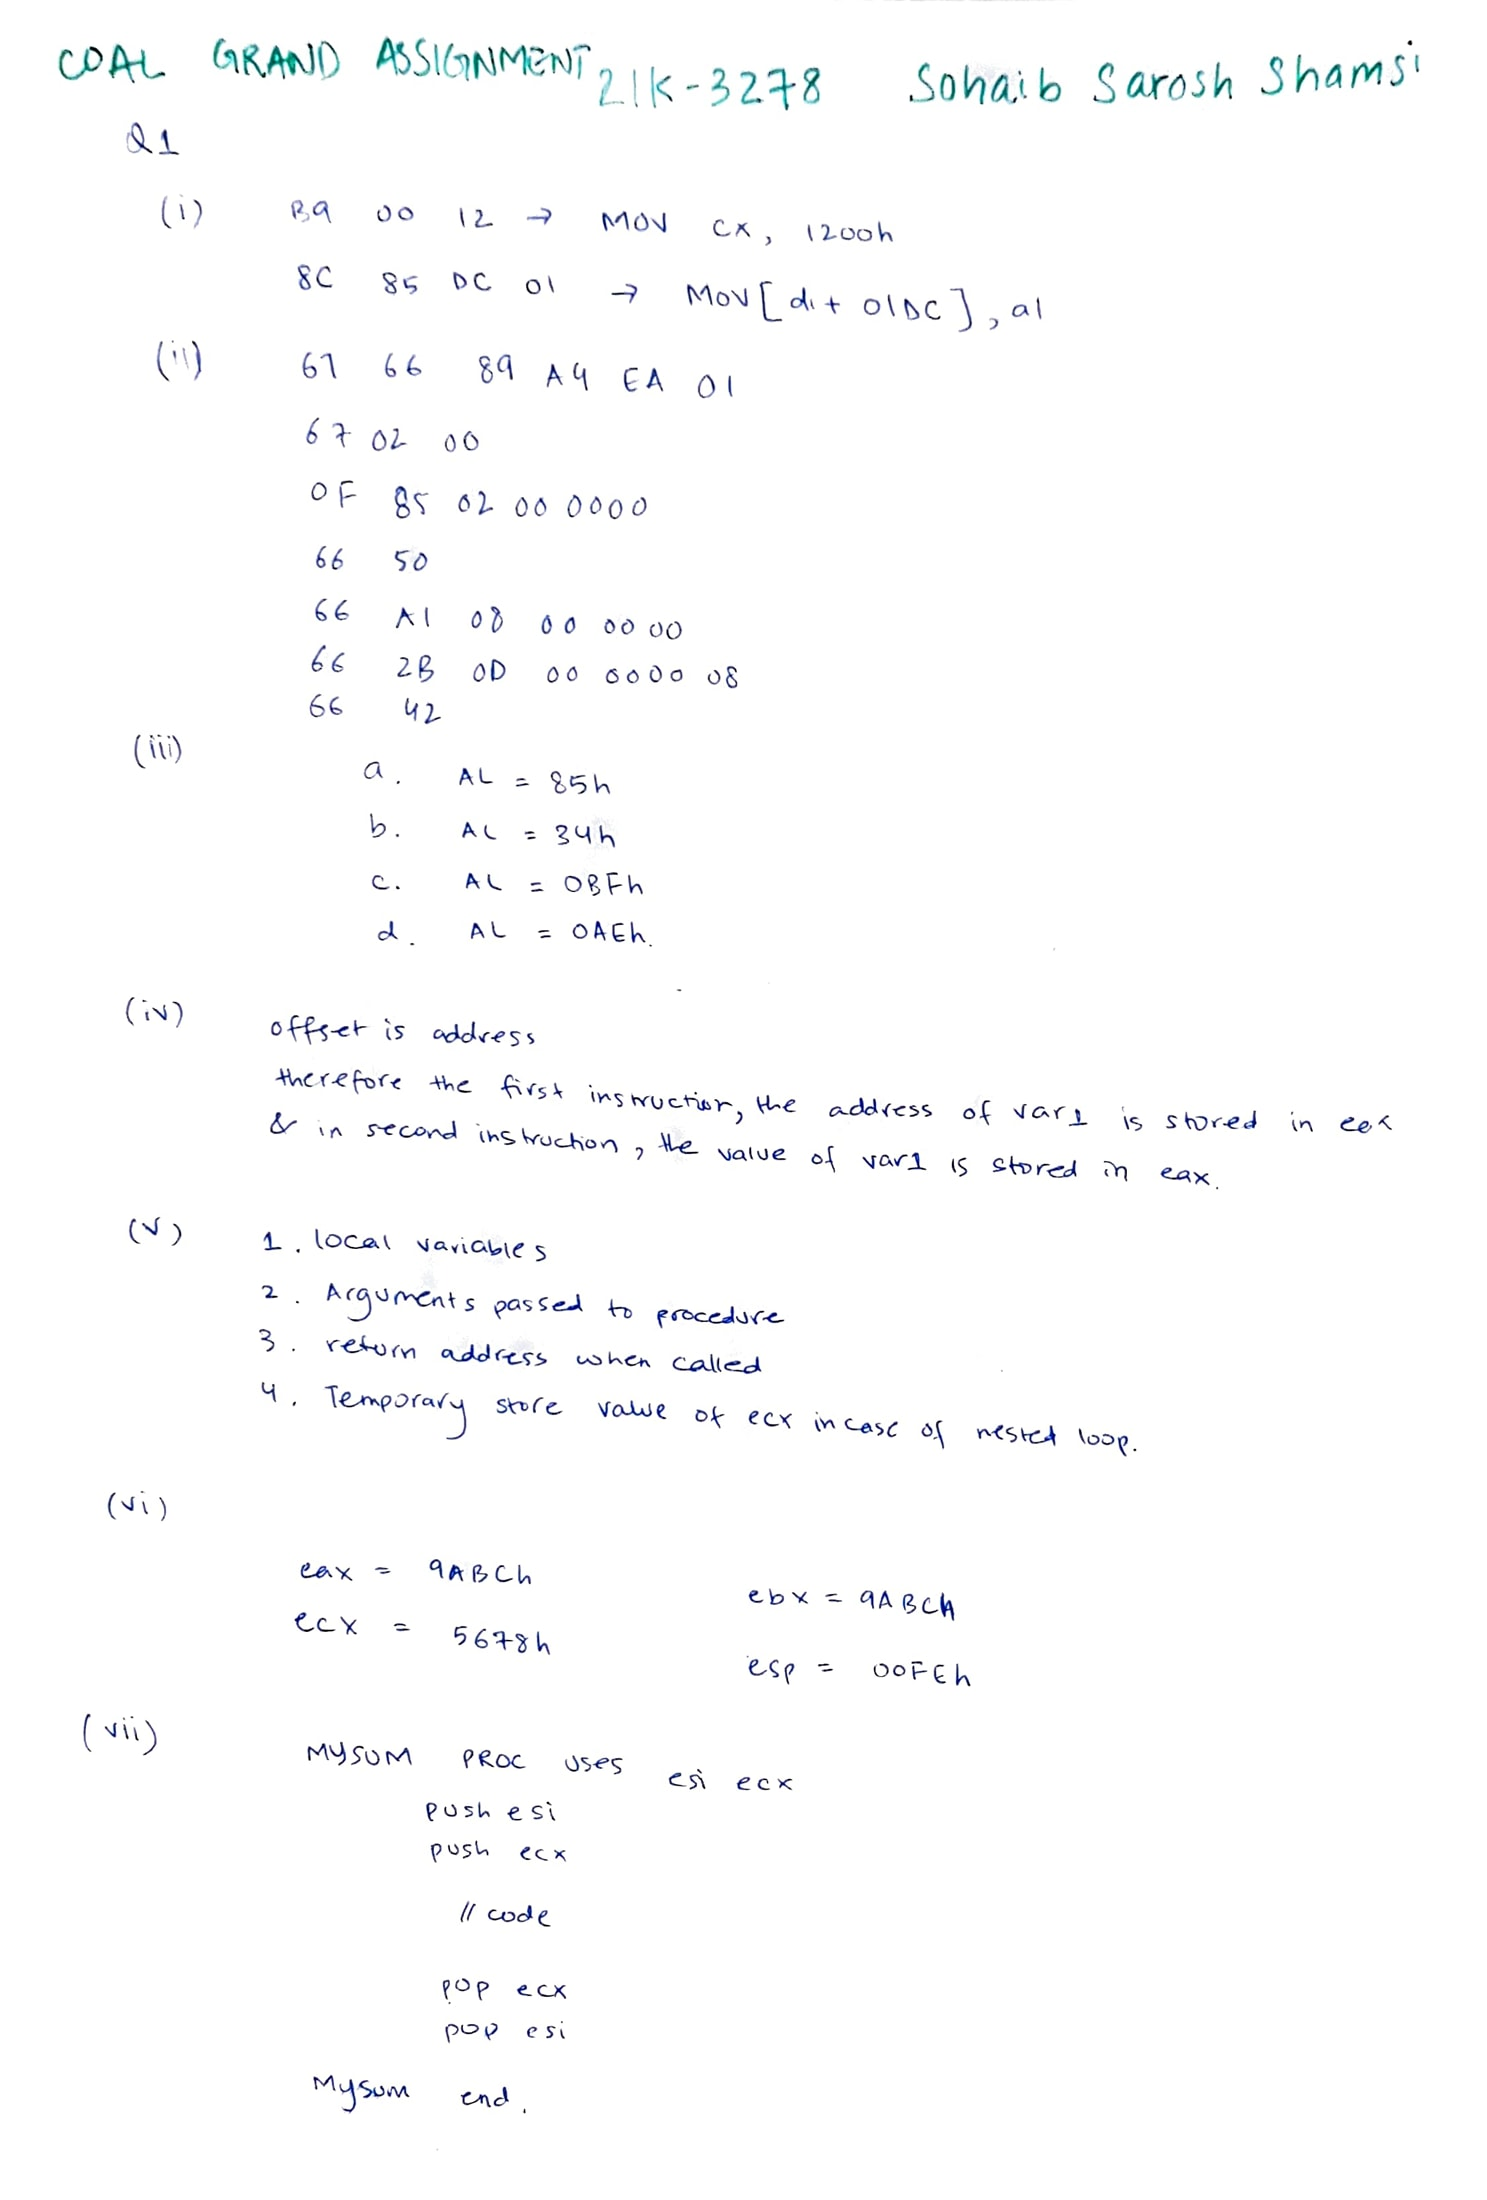 COAL GRAND ASSIGNMENT 21K-3278 Sohaib Sarosh Shamsi
Q1
(i) B9 00 12 → MOV cx, 1200h
8C 85 DC 01 → MOV [di + 01DC], al
(ii) 67 66 89 A4 EA 01
67 02 00
0F 85 02 00 0000
66 50
66 A1 08 00 00 00
66 2B 0D 00 0000 08
66 42
(iii)
a. AL = 85h
b. AL = 34h
c. AL = 0BFh
d. AL = 0AEh.
(iv) offset is address
therefore the first instruction, the address of var1 is stored in
& in second instruction, the value of var1 is stored in eax.
(v) 1. local variables
2. Arguments passed to procedure
3. return address when called
4. Temporary store value of ecx incase of nested loop.
(vi)
eax = 9ABCh ebx = 9ABCh
ecx = 5678h esp = 00FEh
(vii) MYSUM PROC uses esi ecx
push esi
push ecx
// code
pop ecx
pop esi
Mysum end.